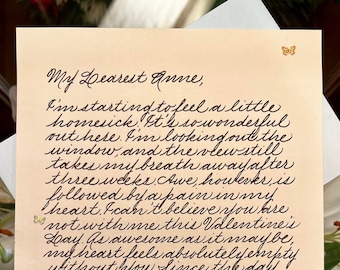 My Dearest Anne,
I'm starting to feel a little
homesick. It's so wonderful
out here. I'm looking out the
window, and the view still
takes my breath away after
three weeks. Awe, however, is
followed by a pain in my
heart. I can't believe you are
not with me this Valentine's
Day. As awesome as it may be,
my heart feels absolutely empty
without you. Since the day